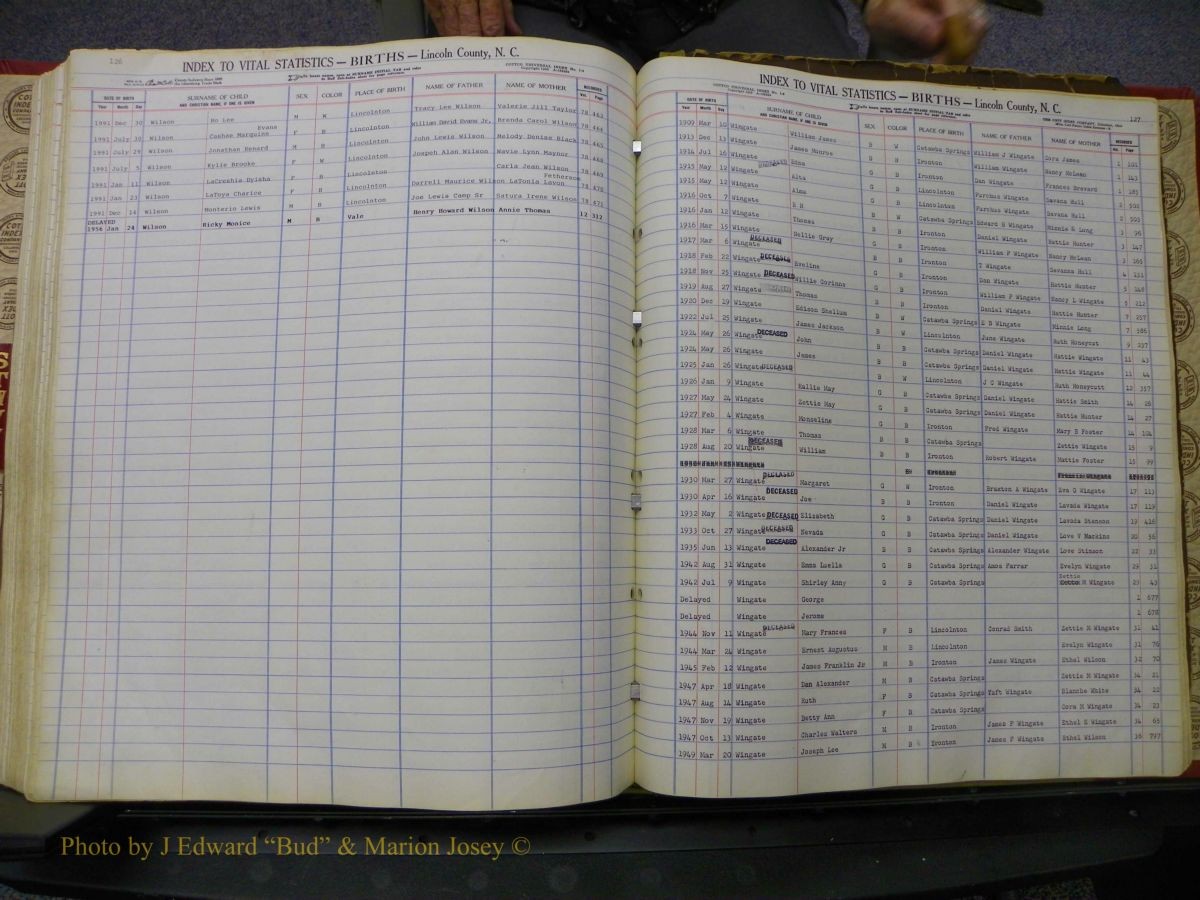 126
INDEX TO VITAL STATISTICS — BIRTHS — Lincoln County, N. C.
DATE OF BIRTH SURNAME OF CHILD SEX COLOR PLACE OF BIRTH NAME OF FATHER NAME OF MOTHER RECORDED
Year Month Day AND CHRISTIAN NAME, IF ONE IS GIVEN Vol. Page
1991 Dec 30 Wilson Bo Lee M W Lincolnton Tracy Lee Wilson Valerie Jill Taylor 78 463
Evans
1991 July 30 Wilson Marquies F B Lincolnton William David Evans Jr. Brenda Carol Wilson 78 464
1991 July 29 Wilson Jonathan Renard M B Lincolnton John Lewis Wilson Melody Denise Black 78 465
1991 July 5 Wilson Kylie Brooke F W Lincolnton Joseph Alan Wilson Wavie Lynn Maynor 78 468
Carla Jean Wilson
1991 Jan 11 Wilson LaCreshia Dyisha F B Lincolnton 78 469
1991 Jan 23 Wilson LaToya Charice F B Lincolnton Darrell Maurice Wilson LaTonia Lavon 78 470
1991 Dec 14 Wilson Monterio Lewis M B Lincolnton Joe Lewis Camp Sr Satura Irene Wilson 78 471
DELAYED
1956 Jan 24 Wilson Ricky Monice M B Vale Henry Howard Wilson Annie Thomas 12 312
127
INDEX TO VITAL STATISTICS — BIRTHS — Lincoln County, N. C.
DATE OF BIRTH SURNAME OF CHILD SEX COLOR PLACE OF BIRTH NAME OF FATHER NAME OF MOTHER RECORDED
Year Month Day AND CHRISTIAN NAME, IF ONE IS GIVEN Vol. Page
1909 Mar 10 Wingate William James B W Catawba Springs William J Wingate Cora James 1 101
1913 Dec 13 Wingate James Monroe B B Ironton William Wingate Nancy McLean 1 143
1914 Jul 16 Wingate Edna G B Ironton Dan Wingate Frances Brevard 1 183
1915 May 12 Wingate Alta G B Lincolnton Farchus Wingate Savana Hull 2 502
1915 May 12 Wingate Alma G B Lincolnton Farchus Wingate Savana Hull 2 503
1916 Oct 7 Wingate B H B W Catawba Springs Edward B Wingate Minnie G Long 3 96
1916 Jan 12 Wingate Thomas B B Ironton Daniel Wingate Hattie Hunter 3 147
1916 Mar 15 Wingate Nellie Gray G B Ironton William F Wingate Nancy McLean 3 165
1917 Mar 6 Wingate DECEASED B B Ironton T Wingate Savanna Hull 4 133
1918 Feb 22 Wingate DECEASED Eveline G B Ironton Dan Wingate Hattie Hunter 5 148
1918 Nov 25 Wingate DECEASED Willie Corinne G B Ironton William F Wingate Nancy L Wingate 5 212
1919 Aug 27 Wingate Thomas B B Ironton Daniel Wingate Hattie Hunter 7 257
1920 Dec 19 Wingate Edison Shellum B W Catawba Springs E B Wingate Minnie Long 7 586
1922 Jul 25 Wingate James Jackson B W Lincolnton June Wingate Ruth Honeycutt 9 237
1924 May 26 Wingate DECEASED John B B Catawba Springs Daniel Wingate Hattie Wingate 11 43
1924 May 26 Wingate James B B Catawba Springs Daniel Wingate Hattie Wingate 11 44
1925 Jan 26 Wingate DECEASED B W Lincolnton J C Wingate Ruth Honeycutt 12 357
1926 Jan 9 Wingate Kallie May G B Catawba Springs Daniel Wingate Hattie Smith 14 26
1927 May 24 Wingate Zettie May G B Catawba Springs Daniel Wingate Hattie Hunter 14 27
1927 Feb 4 Wingate Monseline G B Ironton Fred Wingate Mary B Foster 14 104
1928 Mar 6 Wingate Thomas B B Catawba Springs Zettie Wingate 15 9
1928 Aug 20 Wingate DECEASED William B B Ironton Robert Wingate Mattie Foster 15 99
1930 Mar 27 Wingate DECEASED Margaret G W Ironton Braxton A Wingate Eva O Wingate 17 113
1930 Apr 16 Wingate DECEASED Joe B B Ironton Daniel Wingate Lavada Wingate 17 119
1932 May 2 Wingate DECEASED Elizabeth G B Catawba Springs Daniel Wingate Lavada Stenson 19 416
1933 Oct 27 Wingate DECEASED Nevada G B Catawba Springs Daniel Wingate Love V Mackins 20 56
1935 Jun 13 Wingate DECEASED Alexander Jr B B Catawba Springs Alexander Wingate Love Stinson 22 33
1942 Aug 31 Wingate Emma Luella G B Catawba Springs Amos Farrar Evelyn Wingate 29 31
1942 Jul 9 Wingate Shirley Anny G B Catawba Springs Zettie M Wingate 29 43
Delayed Wingate George 1 677
Delayed Wingate Jerome 1 678
1944 Nov 11 Wingate DECEASED Mary Frances F B Lincolnton Conrad Smith Zettie M Wingate 31 41
1944 Mar 24 Wingate Ernest Augustus M B Lincolnton Evelyn Wingate 31 76
1945 Feb 12 Wingate James Franklin Jr M B Ironton James Wingate Ethel Wilson 32 70
1947 Apr 18 Wingate Dan Alexander M B Catawba Springs Zettie M Wingate 34 21
1947 Aug 14 Wingate Ruth F B Catawba Springs Taft Wingate Blanche White 34 22
1947 Nov 19 Wingate Betty Ann F B Catawba Springs Cora M Wingate 34 23
1947 Oct 13 Wingate Charles Walters M B Ironton James F Wingate Ethel E Wingate 34 65
1949 Mar 20 Wingate Joseph Lee M B Ironton James F Wingate Ethel Wilson 36 797
Photo by J Edward "Bud" & Marion Josey ©